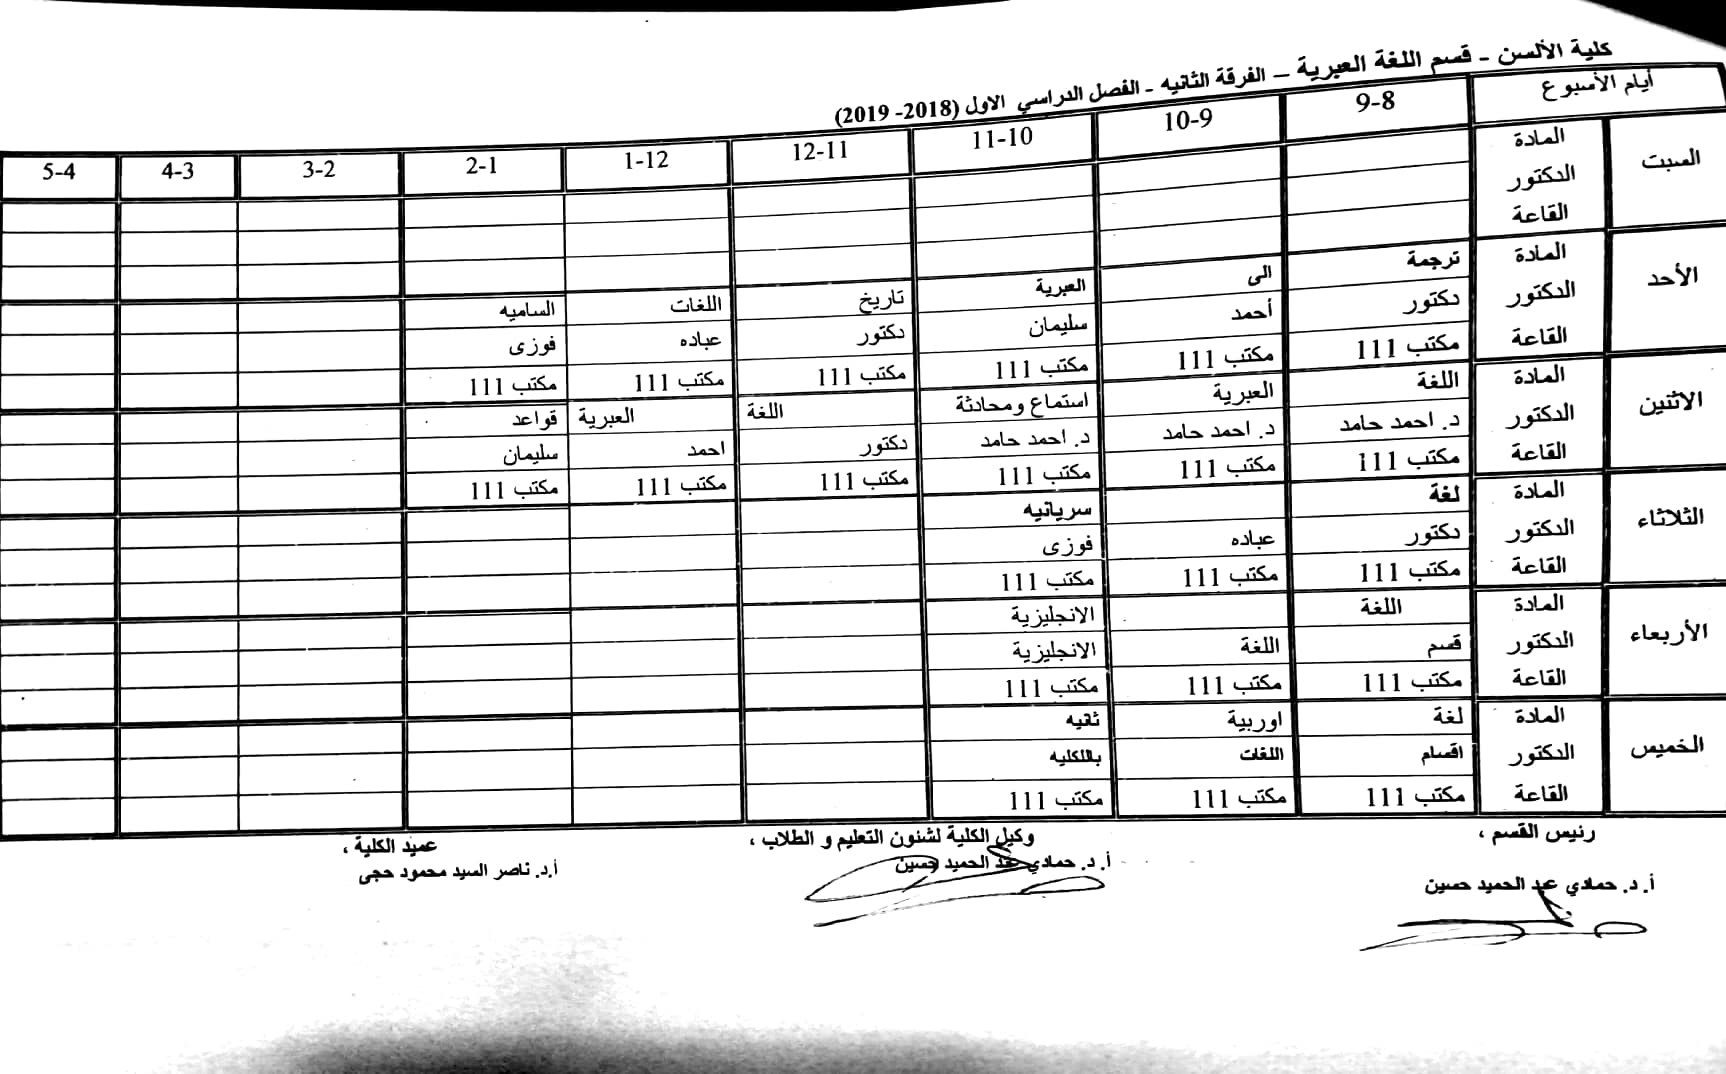 كلية الألسن - قسم اللغة العبرية – الفرقة الثانيه - الفصل الدراسي الاول (2018- 2019)
أيام الأسبوع 8-9 9-10 10-11 11-12 12-1 1-2 2-3 3-4 4-5
السبت
المادة
الدكتور
القاعة
الأحد
المادة ترجمة الى العبرية تاريخ اللغات الساميه
الدكتور دكتور أحمد سليمان دكتور عباده فوزى
القاعة مكتب 111 مكتب 111 مكتب 111 مكتب 111 مكتب 111 مكتب 111
الاثنين
المادة اللغة العبرية استماع ومحادثة اللغة العبرية قواعد
الدكتور د. احمد حامد د. احمد حامد د. احمد حامد دكتور احمد سليمان
القاعة مكتب 111 مكتب 111 مكتب 111 مكتب 111 مكتب 111 مكتب 111
الثلاثاء
المادة لغة سريانيه
الدكتور دكتور عباده فوزى
القاعة مكتب 111 مكتب 111 مكتب 111
الأربعاء
المادة اللغة الانجليزية
الدكتور قسم اللغة الانجليزية
القاعة مكتب 111 مكتب 111 مكتب 111
الخميس
المادة لغة اوربية ثانيه
الدكتور اقسام اللغات باللكليه
القاعة مكتب 111 مكتب 111 مكتب 111
رئيس القسم ، وكيل الكلية لشئون التعليم و الطلاب ، عميد الكلية ،
أ. د. حمادي عبد الحميد حسين أ. د. حمادي عبد الحميد حسين أ.د. ناصر السيد محمود حجى